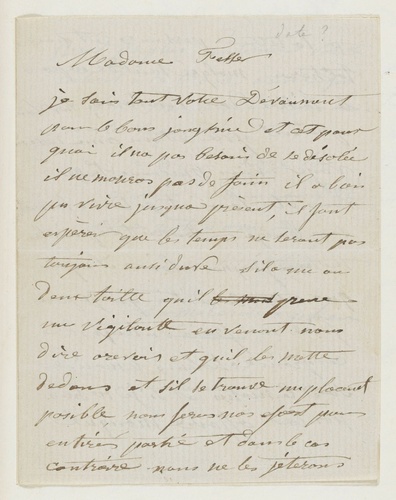 date ?
Madame Fesser
je sais tout votre Dévaument
pour le bons jongkind et cet pour
quoi il na pas besoin de se désolée
il ne mouras pas de faim il a bien
pu vivre jusqua présent, il faut
espérér que les temps ne seront pas
toujours ausi dure s'il a une ou
Deux toille quil prene
une vigilante en venant nous
dire orevoir et quil les mette
dedans et sil se trouve un placement
posible nous ferons nos efort pour
en tirés partie et dans le cas
contraire nous ne les jéterons